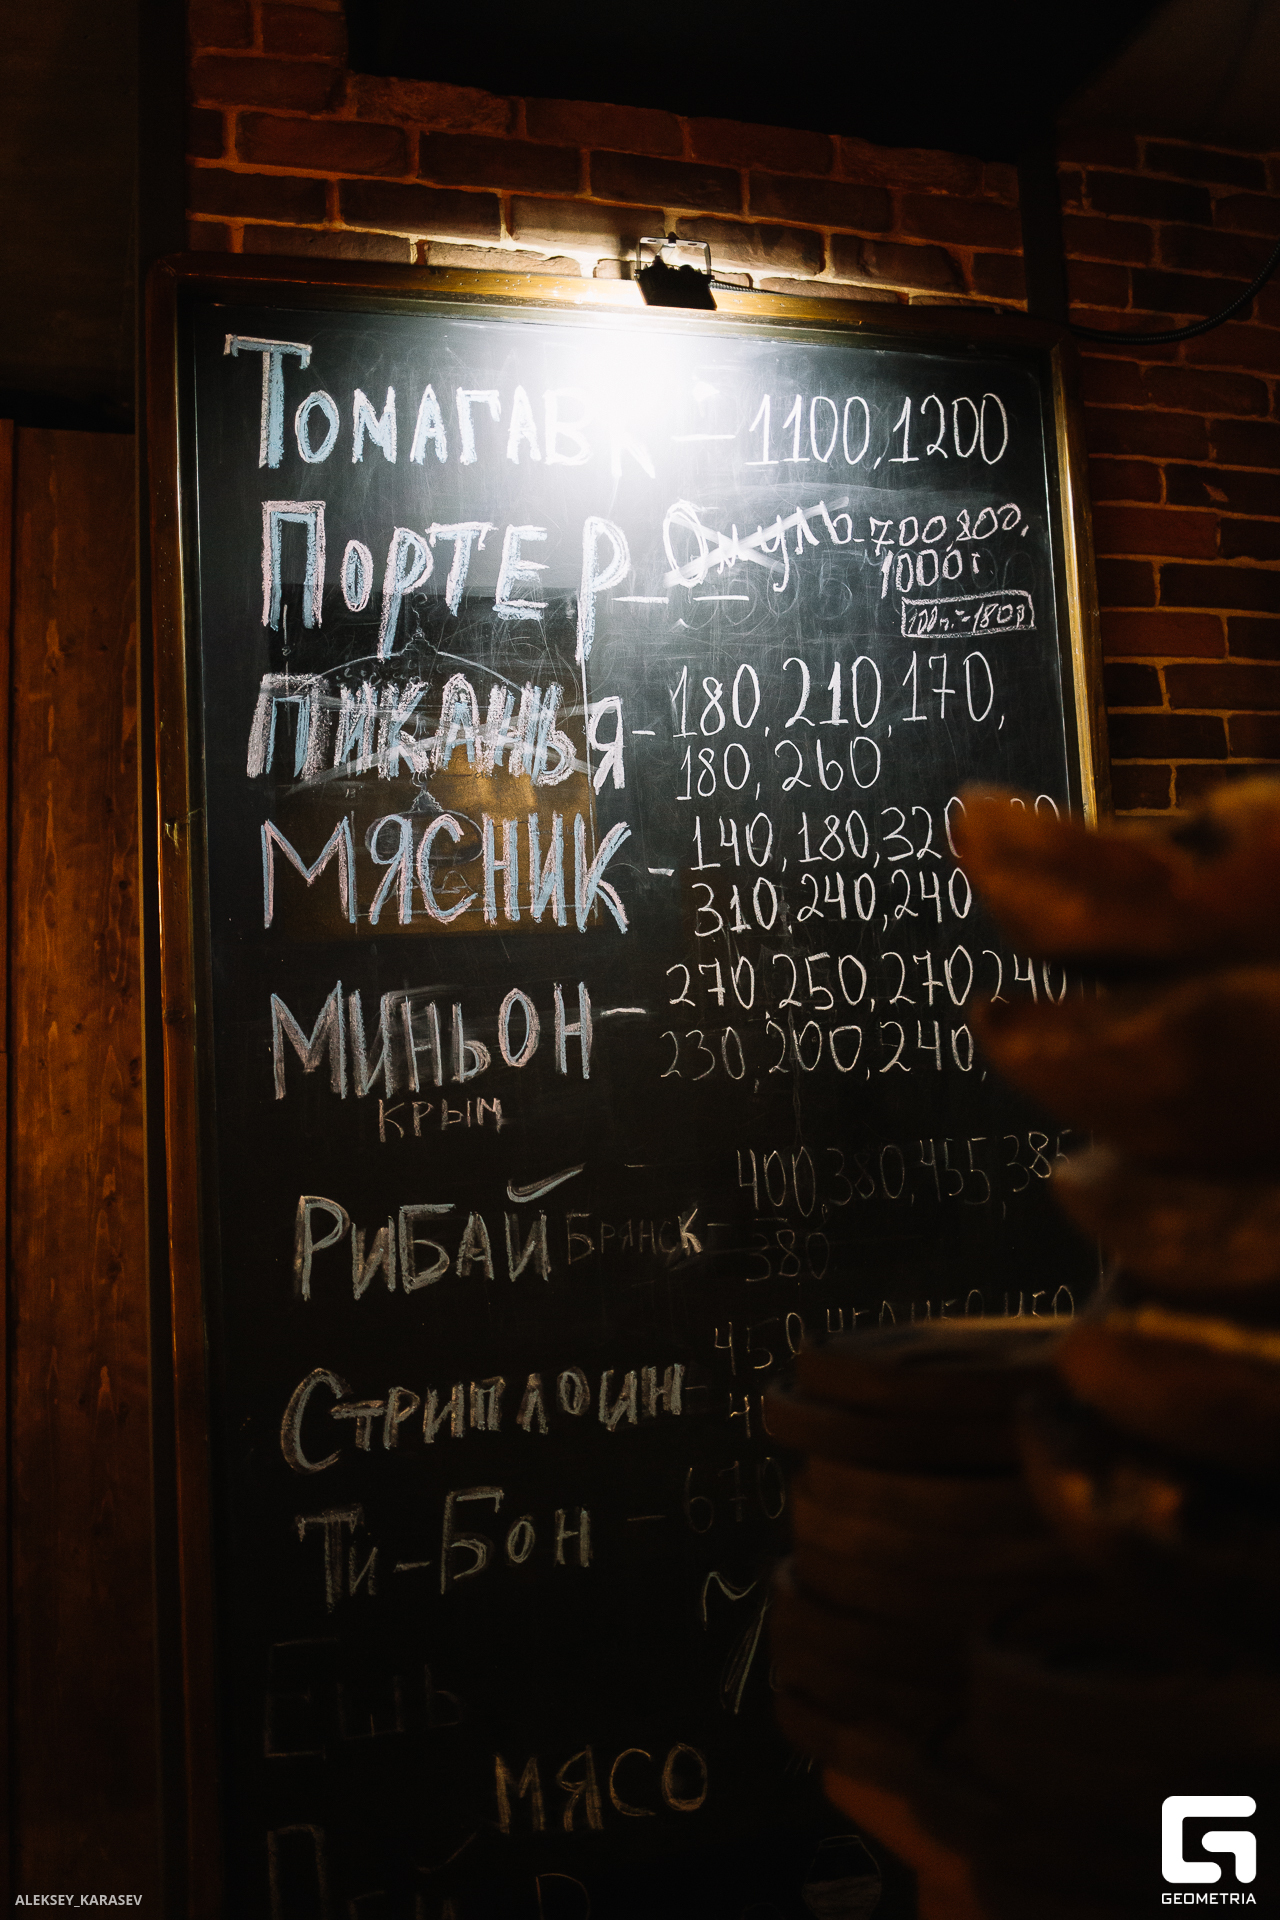 Томагавк — 1100, 1200
Портер — Омуль - 700, 800,
1000г.
100г. - 180р
Пиканья - 180, 210, 170,
180, 260
Мясник - 140, 180, 320
310, 240, 240
Миньон - 270, 250, 270, 240
230, 200, 240,
Крым
400, 380, 455, 385
Рибай Брянск -
380
450
Стриплоин -
Ти-Бон - 670
Ешь
мясо
ALEKSEY_KARASEV
GEOMETRIA